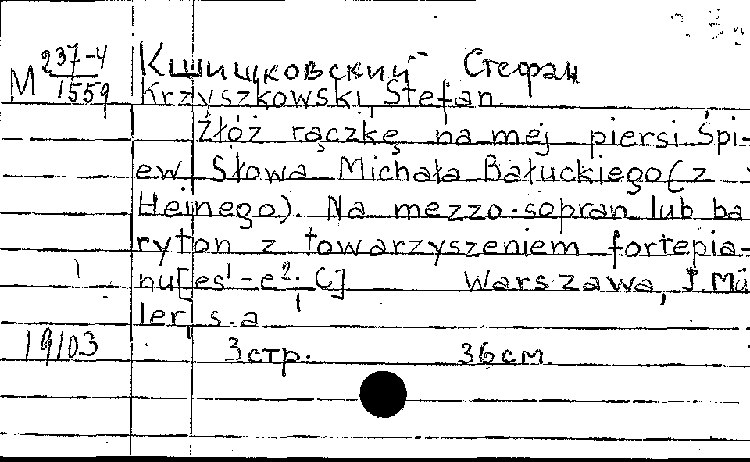 М 237-4
1559
Кшишковский Стефан
Krzyszkowski, Stefan
Złóż rączkę na mej piersi. Śpi-
ew. Słowa Michała Bałuckiego (z
Heinego). Na mezzo-sopran lub ba
ryton z towarzyszeniem fortepia-
nu [es¹-e². C] Warszawa, J. Mü
ler, s.a
19103
3 стр. 36 см.